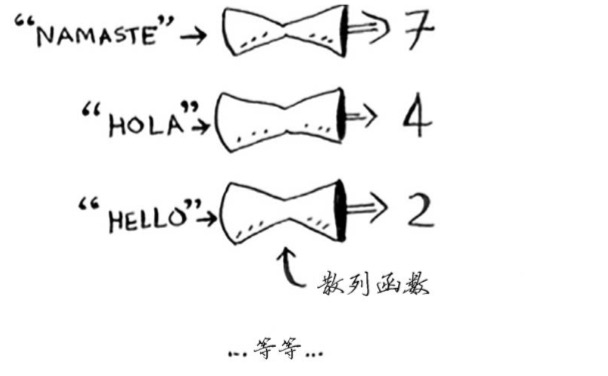 “NAMASTE”→ 7
“HOLA”→ 4
“HELLO”→ 2
散列函数
...等等...